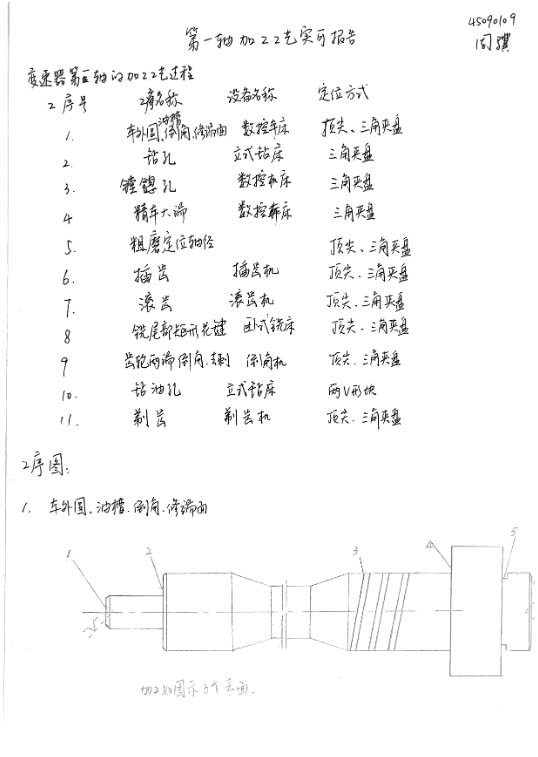 45090109
第一轴加工工艺实习报告
周骥
变速器第一轴的加工工艺过程
工序号 工序名称 设备名称 定位方式
1. 车外圆、油槽、倒角、修端面 数控车床 顶尖、三角夹盘
2. 钻孔 立式钻床 三角夹盘
3. 镗锪孔 数控车床 三角夹盘
4 精车大端 数控车床 三角夹盘
5. 粗磨定位轴径 顶尖、三角夹盘
6. 插齿 插齿机 顶尖、三角夹盘
7. 滚齿 滚齿机 顶尖、三角夹盘
8 铣尾部矩形花键 卧式铣床 顶尖、三角夹盘
9 齿轮两端倒角、去刺 倒角机 顶尖、三角夹盘
10. 钻油孔 立式钻床 两V形块
11. 剃齿 剃齿机 顶尖、三角夹盘
工序图:
1. 车外圆、油槽、倒角、修端面
1 2 3 4 5
加工如图示5个表面.